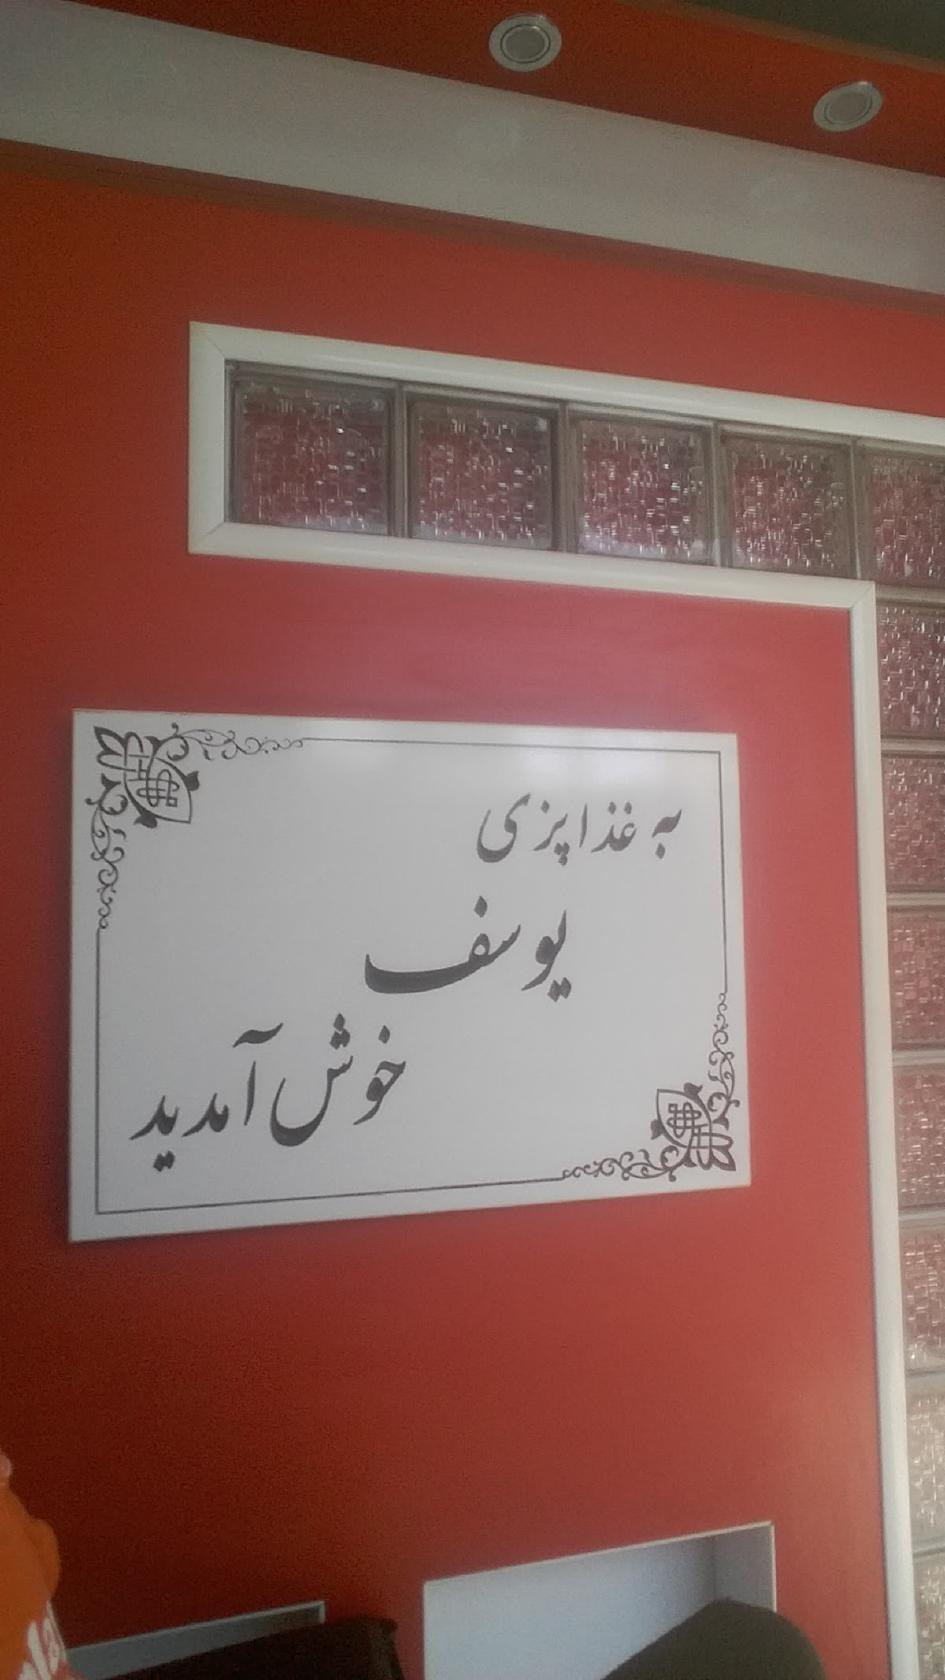 به غذاپزی
یوسف
خوش آمدید